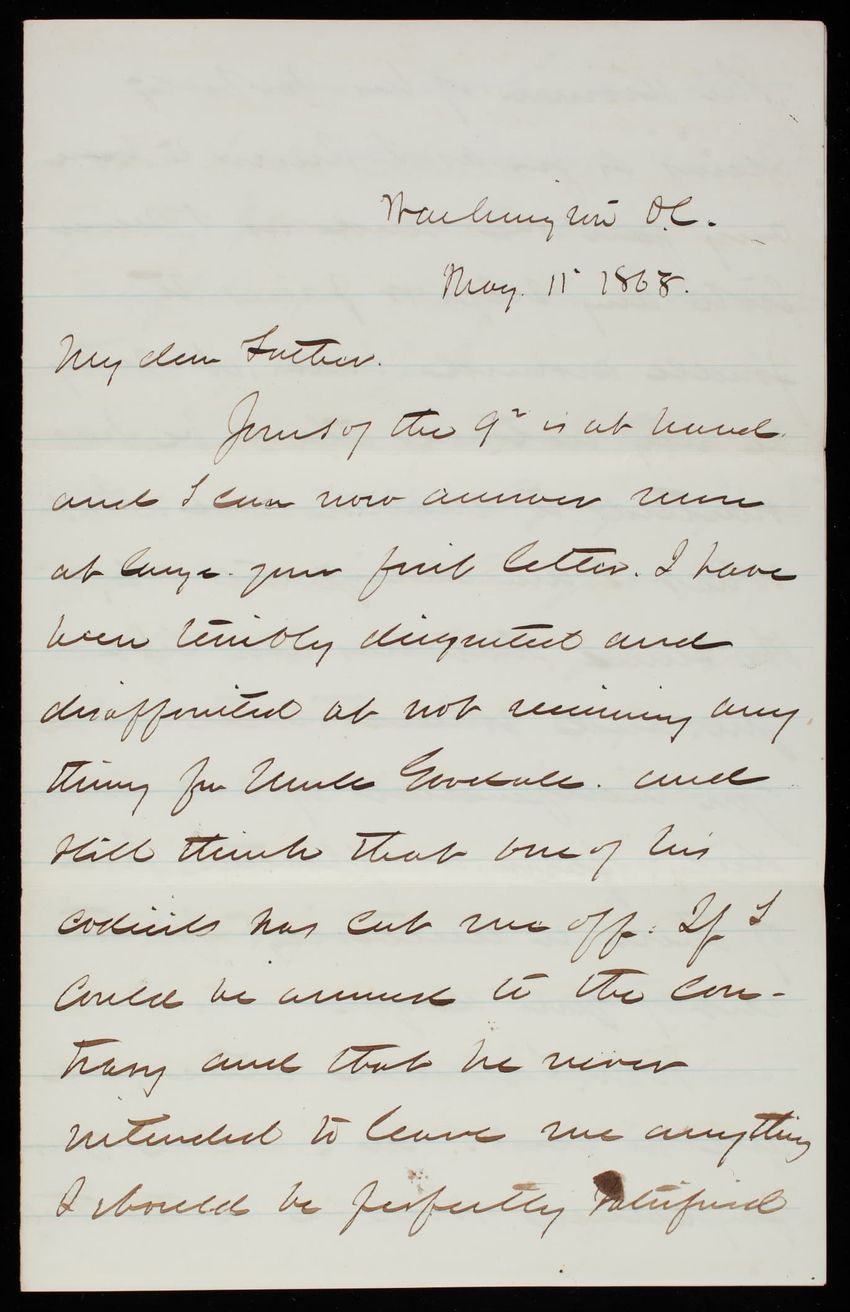 Washington D.C.
May. 11 1868.
My dear Father.
Yours of the 9th is at hand.
and I can now answer more
at large. your first letter. I have
been terribly disgusted and
disappointed at not receiving any
thing from Uncle Goodale. and
still think that one of his
codicils has cut me off. If I
could be assured to the con-
trary and that he never
intended to leave me anything
I should be perfectly satisfied